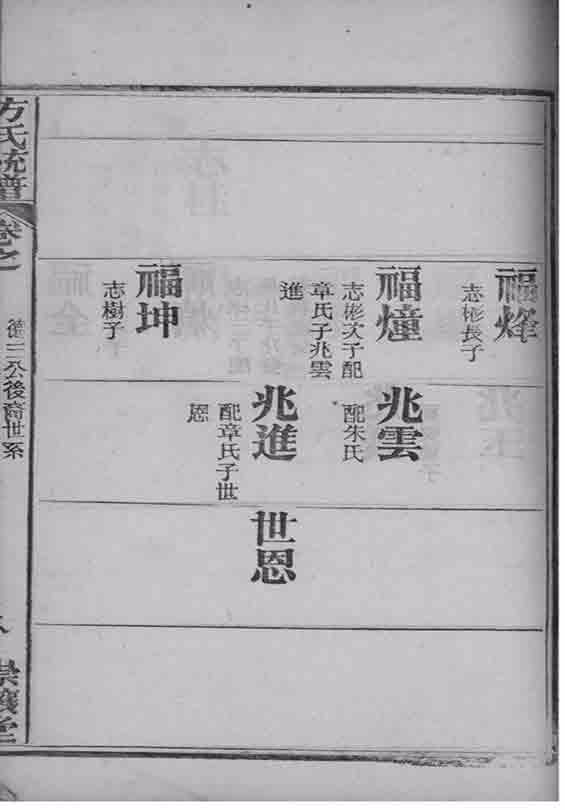 福烽
志彬長子
福燑
志彬次子配
章氏子兆雲
進
福坤
志樹子
兆雲
配朱氏
兆進
配章氏子世
恩
世恩
方氏統譜
卷之
德三公後裔世系